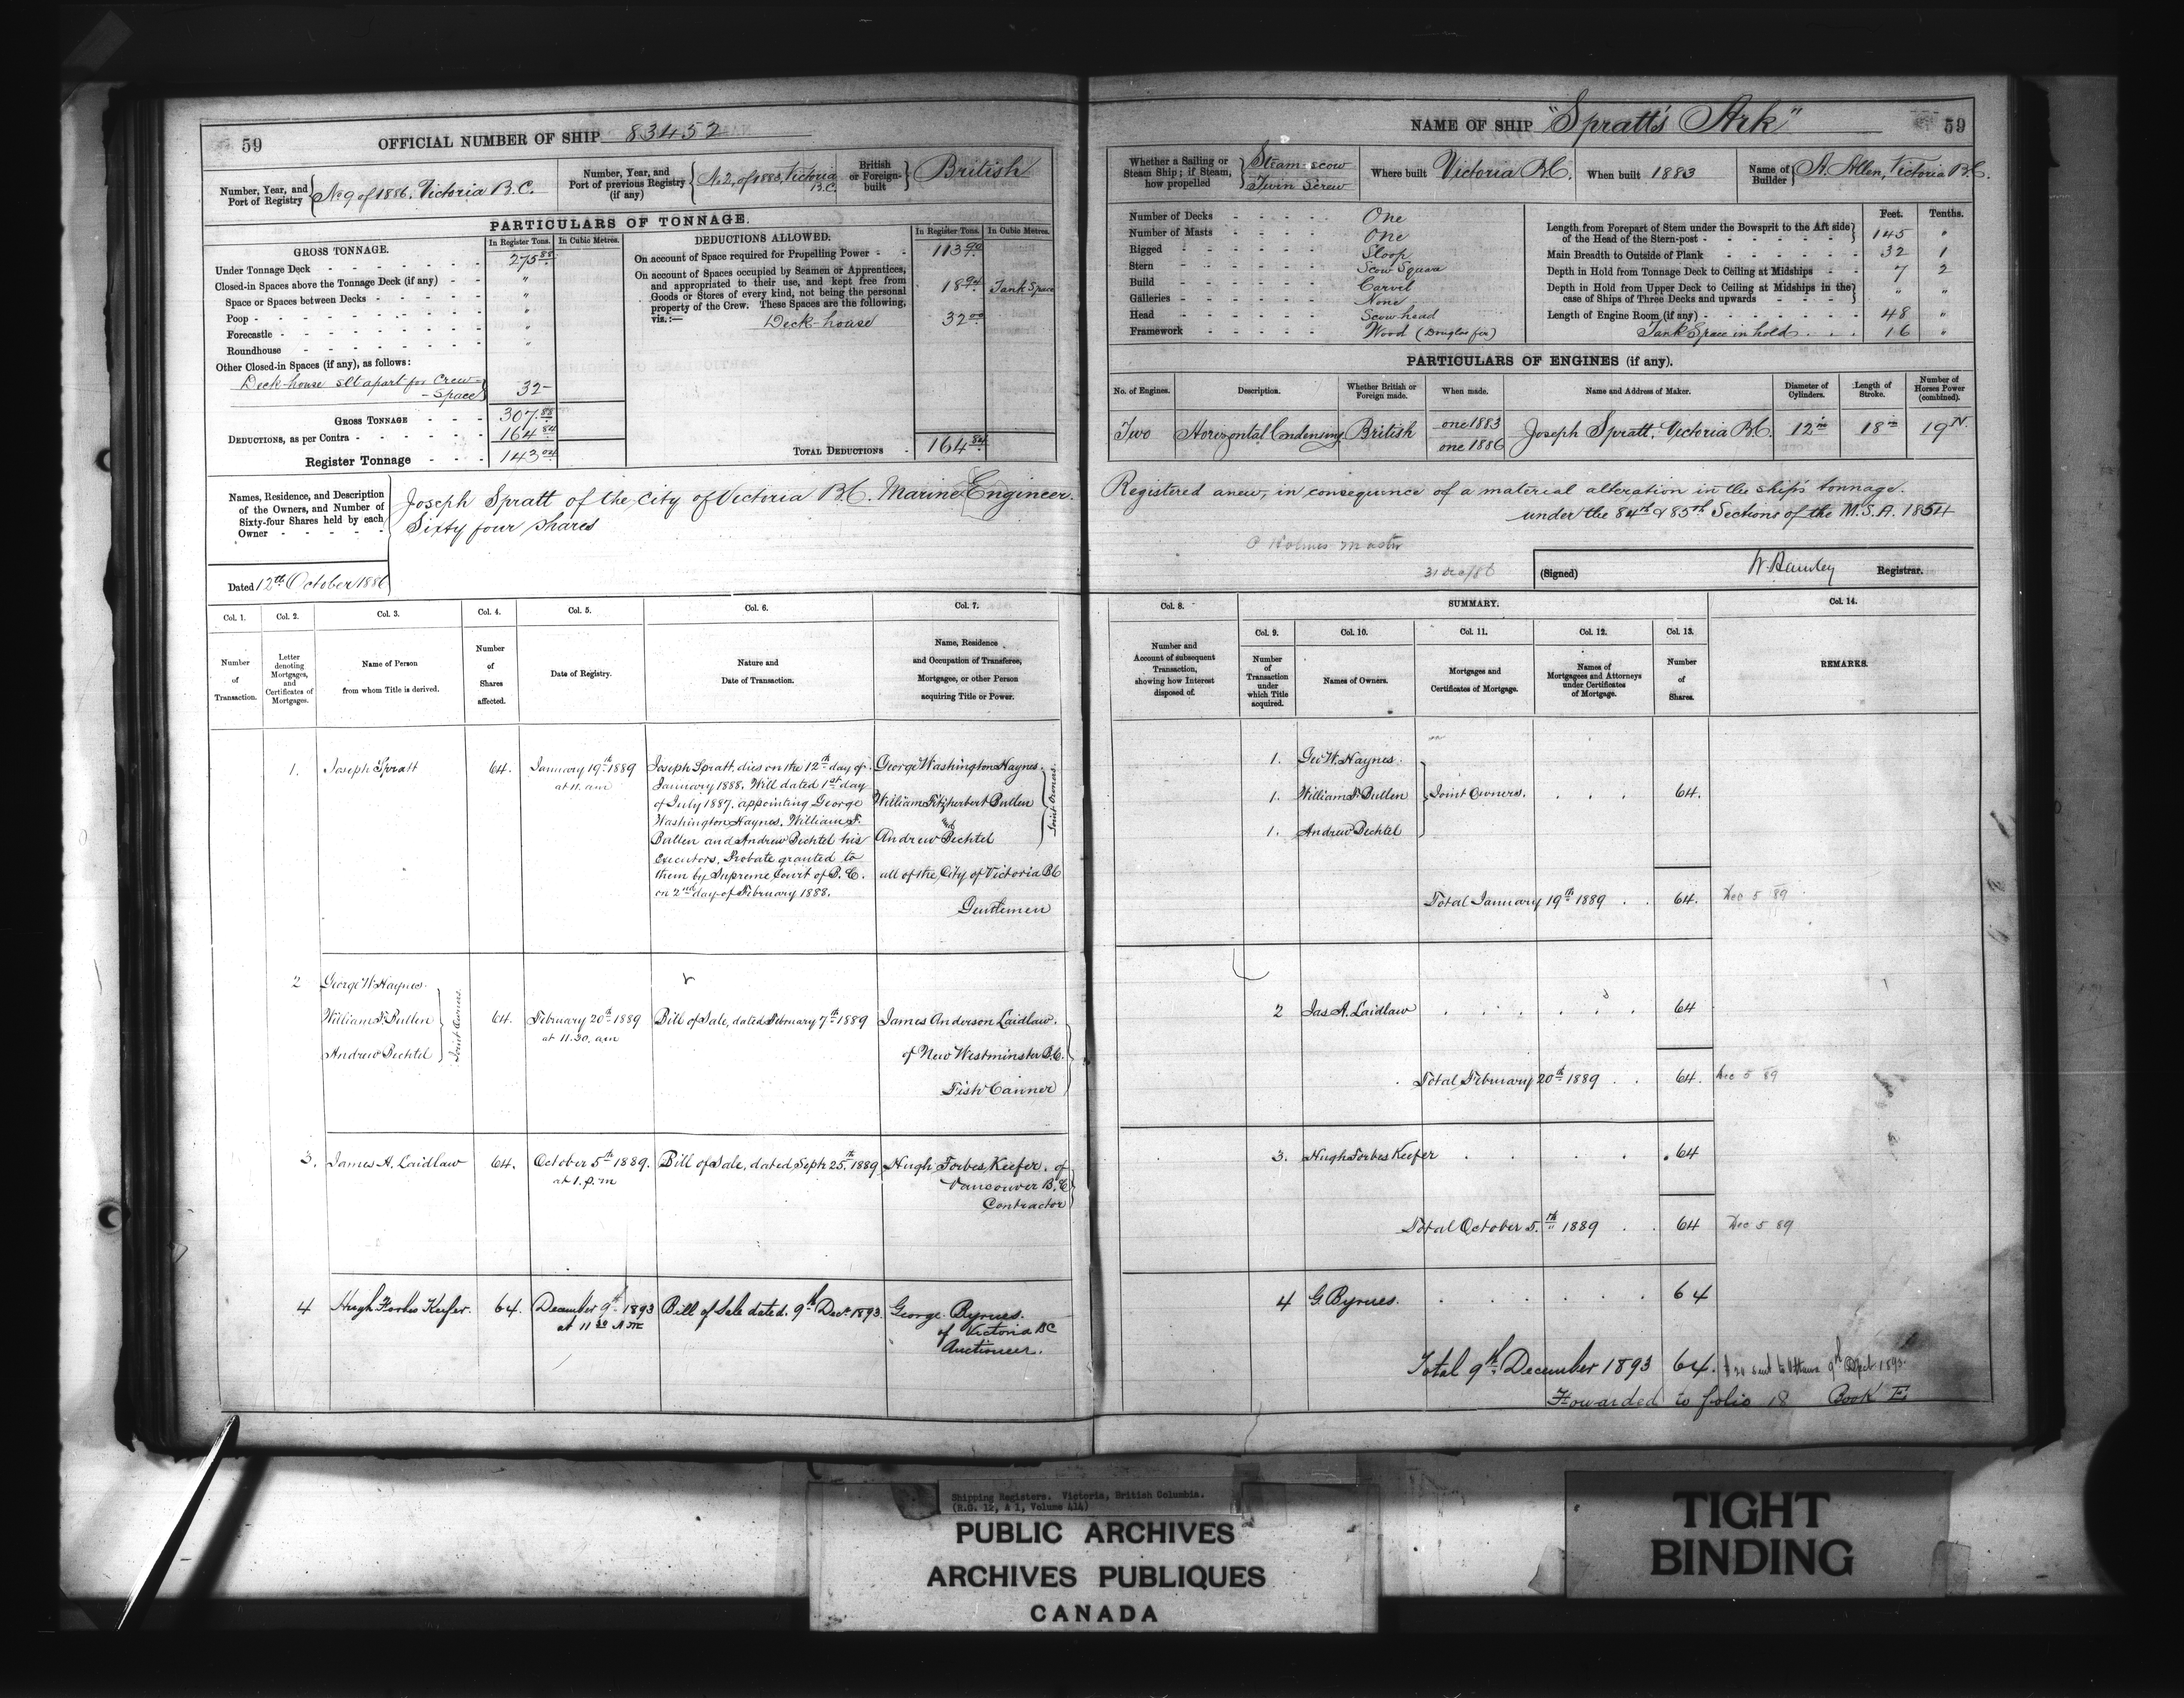 59
OFFICIAL NUMBER OF SHIP 83452
Number, Year, and Port of Registry
No 9 of 1886. Victoria B.C.
Number, Year, and Port of previous Registry (if any)
No 2, of 1883, Victoria B.C.
British or Foreign-built
British
PARTICULARS OF TONNAGE.
GROSS TONNAGE.
In Register Tons.
In Cubic Metres.
Under Tonnage Deck 275.88
Closed-in Spaces above the Tonnage Deck (if any) "
Space or Spaces between Decks "
Poop "
Forecastle "
Roundhouse "
Other Closed-in Spaces (if any), as follows:
Deck-house set apart for Crew-Space 32-
GROSS TONNAGE 307.88
DEDUCTIONS, as per Contra 164.84
Register Tonnage 143.04
DEDUCTIONS ALLOWED.
In Register Tons.
In Cubic Metres.
On account of Space required for Propelling Power 113.90
On account of Spaces occupied by Seamen or Apprentices,
and appropriated to their use, and kept free from
Goods or Stores of every kind, not being the personal
property of the Crew. These Spaces are the following,
viz.:—
18.94 Tank Space
Deck-house 32.00
TOTAL DEDUCTIONS 164.84
Names, Residence, and Description
of the Owners, and Number of
Sixty-four Shares held by each
Owner
Joseph Spratt of the City of Victoria B.C. Marine Engineer.
Sixty four shares
Dated 12th October 1886
Col. 1. Number of Transaction.
Col. 2. Letter denoting Mortgages, and Certificates of Mortgages.
Col. 3. Name of Person from whom Title is derived.
Col. 4. Number of Shares affected.
Col. 5. Date of Registry.
Col. 6. Nature and Date of Transaction.
Col. 7. Name, Residence and Occupation of Transferee, Mortgagee, or other Person acquiring Title or Power.
1. Joseph Spratt 64. January 19th 1889 at 11. am
Joseph Spratt, dies on the 12th day of
January 1888. Will dated 1st day
of July 1887. appointing George
Washington Haynes, William F.
Bullen and Andrew Bechtel his
Executors. Probate granted to
them by Supreme Court of B.C.
on 2nd day of February 1888.
George Washington Haynes.
William Fitzherbert Bullen
and
Andrew Bechtel
Joint Owners.
all of the City of Victoria BC
Gentlemen
2 George W Haynes.
William F. Bullen
Andrew Bechtel
Joint Owners.
64. February 20th 1889 at 11.30. am
Bill of Sale, dated February 7th 1889
James Anderson Laidlaw.
of New Westminster B.C.
Fish Canner
3. James A. Laidlaw 64. October 5th 1889. at 1. p.m
Bill of Sale, dated Sepr 25th 1889
Hugh Forbes Keefer. of
Vancouver B.C
Contractor
4 Hugh Forbes Keefer. 64. December 9th 1893 at 11 30 A M
Bill of Sale dated. 9th Decr 1893.
George Byrnes.
of Victoria BC
Auctioneer.
NAME OF SHIP "Spratt's Ark"
59
Whether a Sailing or Steam Ship; if Steam, how propelled
Steam-scow
Twin Screw
Where built Victoria B.C.
When built 1883
Name of Builder A. Allen, Victoria B.C.
Number of Decks One
Number of Masts One
Rigged Sloop
Stern Scow Square
Build Carvel
Galleries None
Head Scow head
Framework Wood (Douglas fir)
Feet. Tenths.
Length from Forepart of Stem under the Bowsprit to the Aft side of the Head of the Stern-post 145 "
Main Breadth to Outside of Plank 32 1
Depth in Hold from Tonnage Deck to Ceiling at Midships 7 2
Depth in Hold from Upper Deck to Ceiling at Midships in the case of Ships of Three Decks and upwards " "
Length of Engine Room (if any) 48 "
Tank Space in hold 16 "
PARTICULARS OF ENGINES (if any).
No. of Engines.
Description.
Whether British or Foreign made.
When made.
Name and Address of Maker.
Diameter of Cylinders.
Length of Stroke.
Number of Horses Power (combined).
Two Horizontal Condensing British one 1883 one 1886 Joseph Spratt. Victoria B.C. 12 in 18 in 19 N
Registered anew, in consequence of a material alteration in the ship's tonnage.
under the 84th & 85th Sections of the M.S.A. 1854
O Holmes Master
31 Dec/86
(Signed) W. Hamley Registrar.
Col. 8. Number and Account of subsequent Transaction, showing how Interest disposed of.
SUMMARY.
Col. 9. Number of Transaction under which Title acquired.
Col. 10. Names of Owners.
Col. 11. Mortgages and Certificates of Mortgage.
Col. 12. Names of Mortgagees and Attorneys under Certificates of Mortgage.
Col. 13. Number of Shares.
Col. 14. REMARKS.
1. Geo W. Haynes.
1. William F. Bullen Joint Owners. 64.
1. Andrew Bechtel
Total January 19th 1889 64. Dec 5 89
2 Jas A. Laidlaw 64
Total February 20th 1889 64. Dec 5 89
3. Hugh Forbes Keefer 64
Total October 5th 1889 64 Dec 5 89
4 G. Byrnes. 64
Total 9th December 1893 64. sent to Ottawa 9th 1893.
Fowarded to folio 18 Book E
Shipping Registers. Victoria, British Columbia.
(R.G. 12, A 1, Volume 414)
PUBLIC ARCHIVES
ARCHIVES PUBLIQUES
CANADA
TIGHT
BINDING